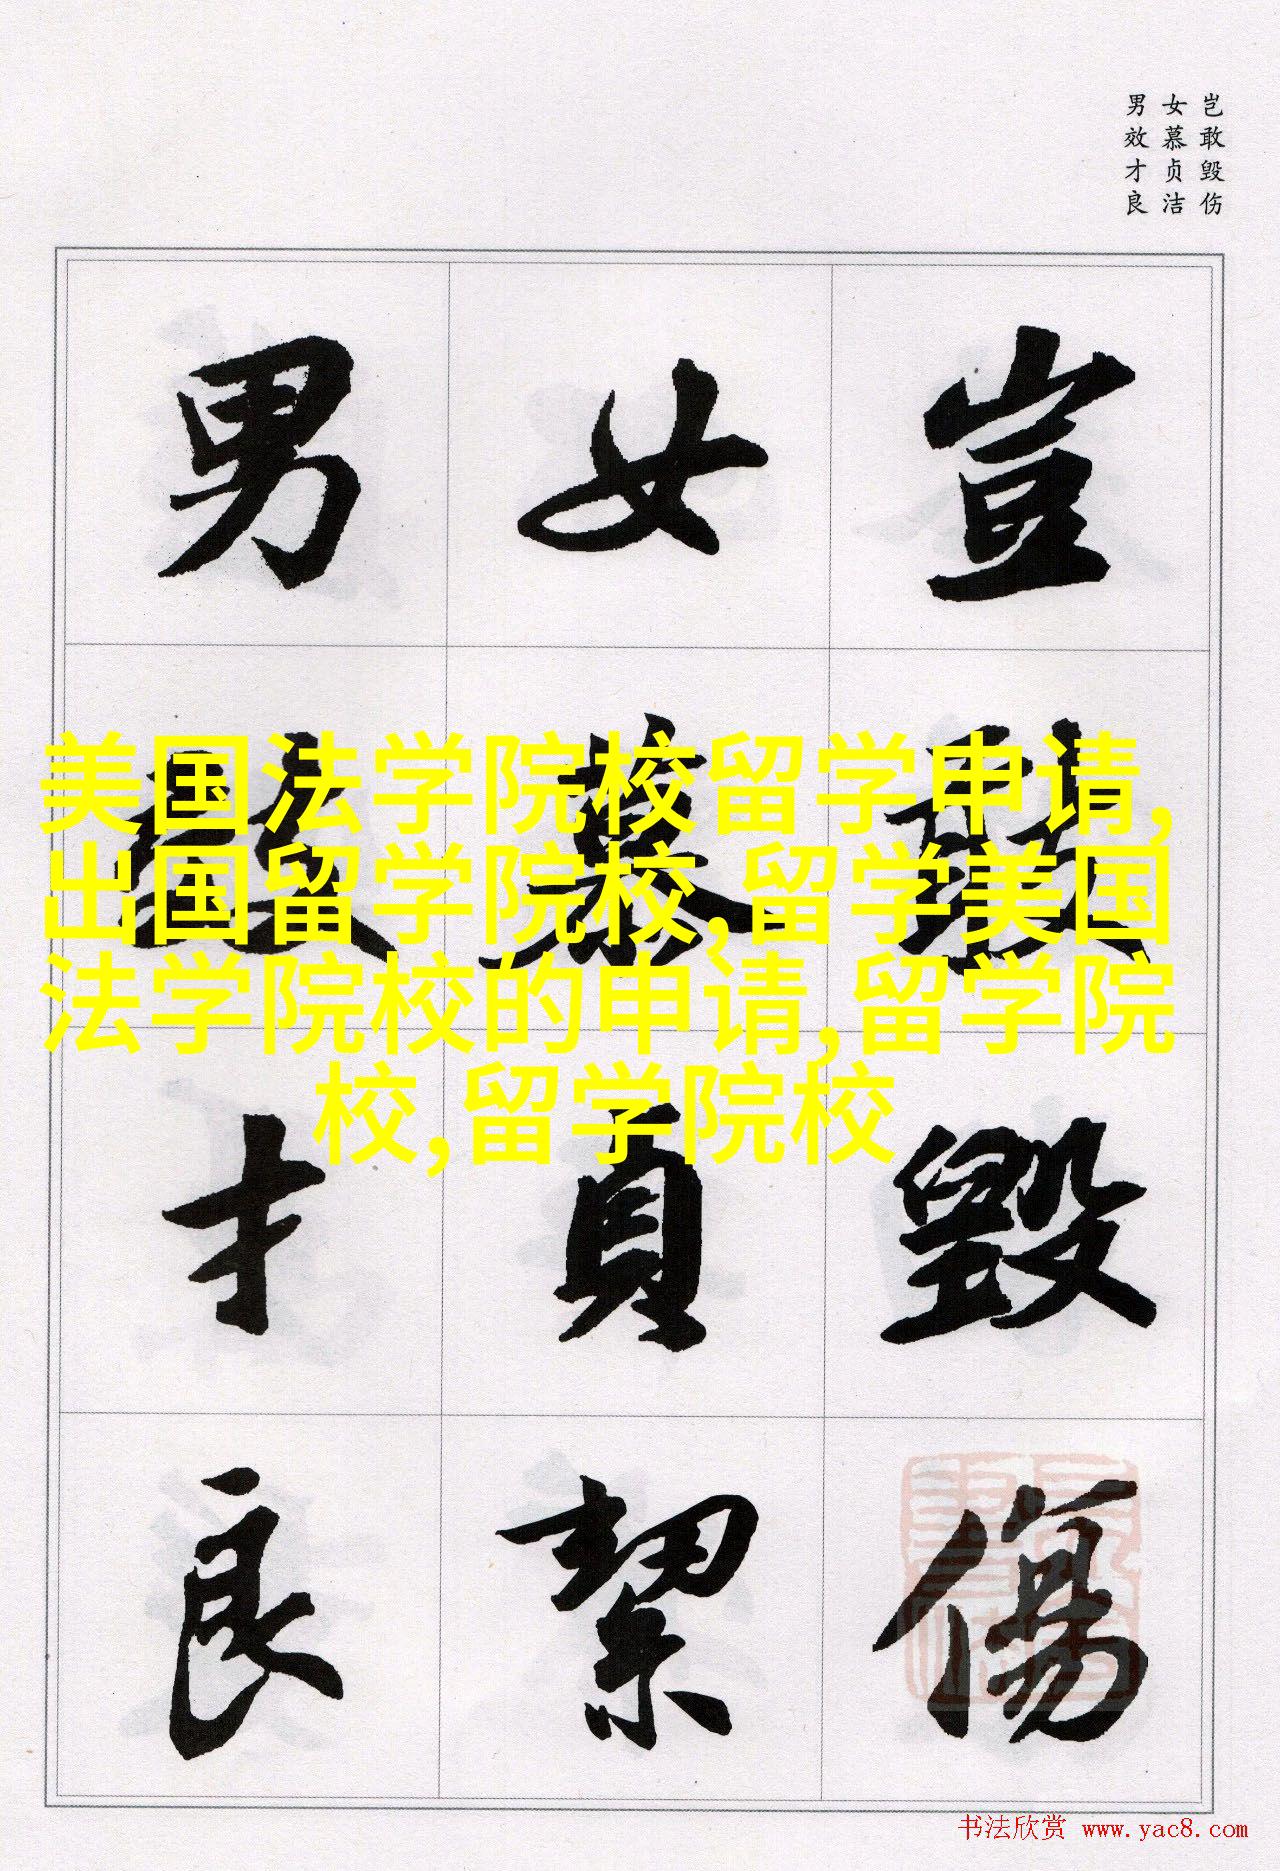 岂敢毁伤
女慕贞洁
男效才良
豈敢毀傷
女慕貞絜
男效才良
美国法学院校留学申请,
出国留学院校,留学美国
法学院校的申请,留学院
校,留学院校
书法欣赏 www.yac8.com